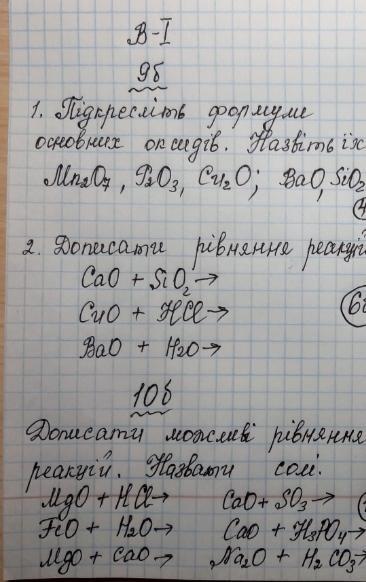 В-I
9б
1. Підкресліть формули
основних оксидів. Назвіть їх
Mn₂O₇, P₂O₃, Cu₂O; BaO, SiO₂
2. Дописати рівняння реакцій
CaO + SiO₂→
CuO + HCl→
BaO + H₂O→
10б
Дописати можливі рівняння
реакцій. Назвати солі.
MgO + HCl→ CaO + SO₃→
FeO + H₂O→ CaO + H₃PO₄→
MgO + CaO→ Na₂O + H₂CO₃→